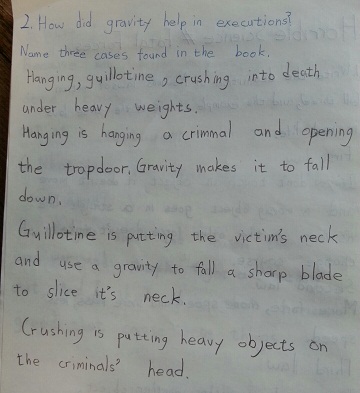 2. How did gravity help in executions?
Name three cases found in the book.
Hanging, guillotine, crushing into death
under heavy weights.
Hanging is hanging a crimmal and opening
the trapdoor. Gravity makes it to fall
down.
Guillotine is putting the victim's neck
and use a gravity to fall a sharp blade
to slice it's neck.
Crushing is putting heavy objects on
the criminals' head.